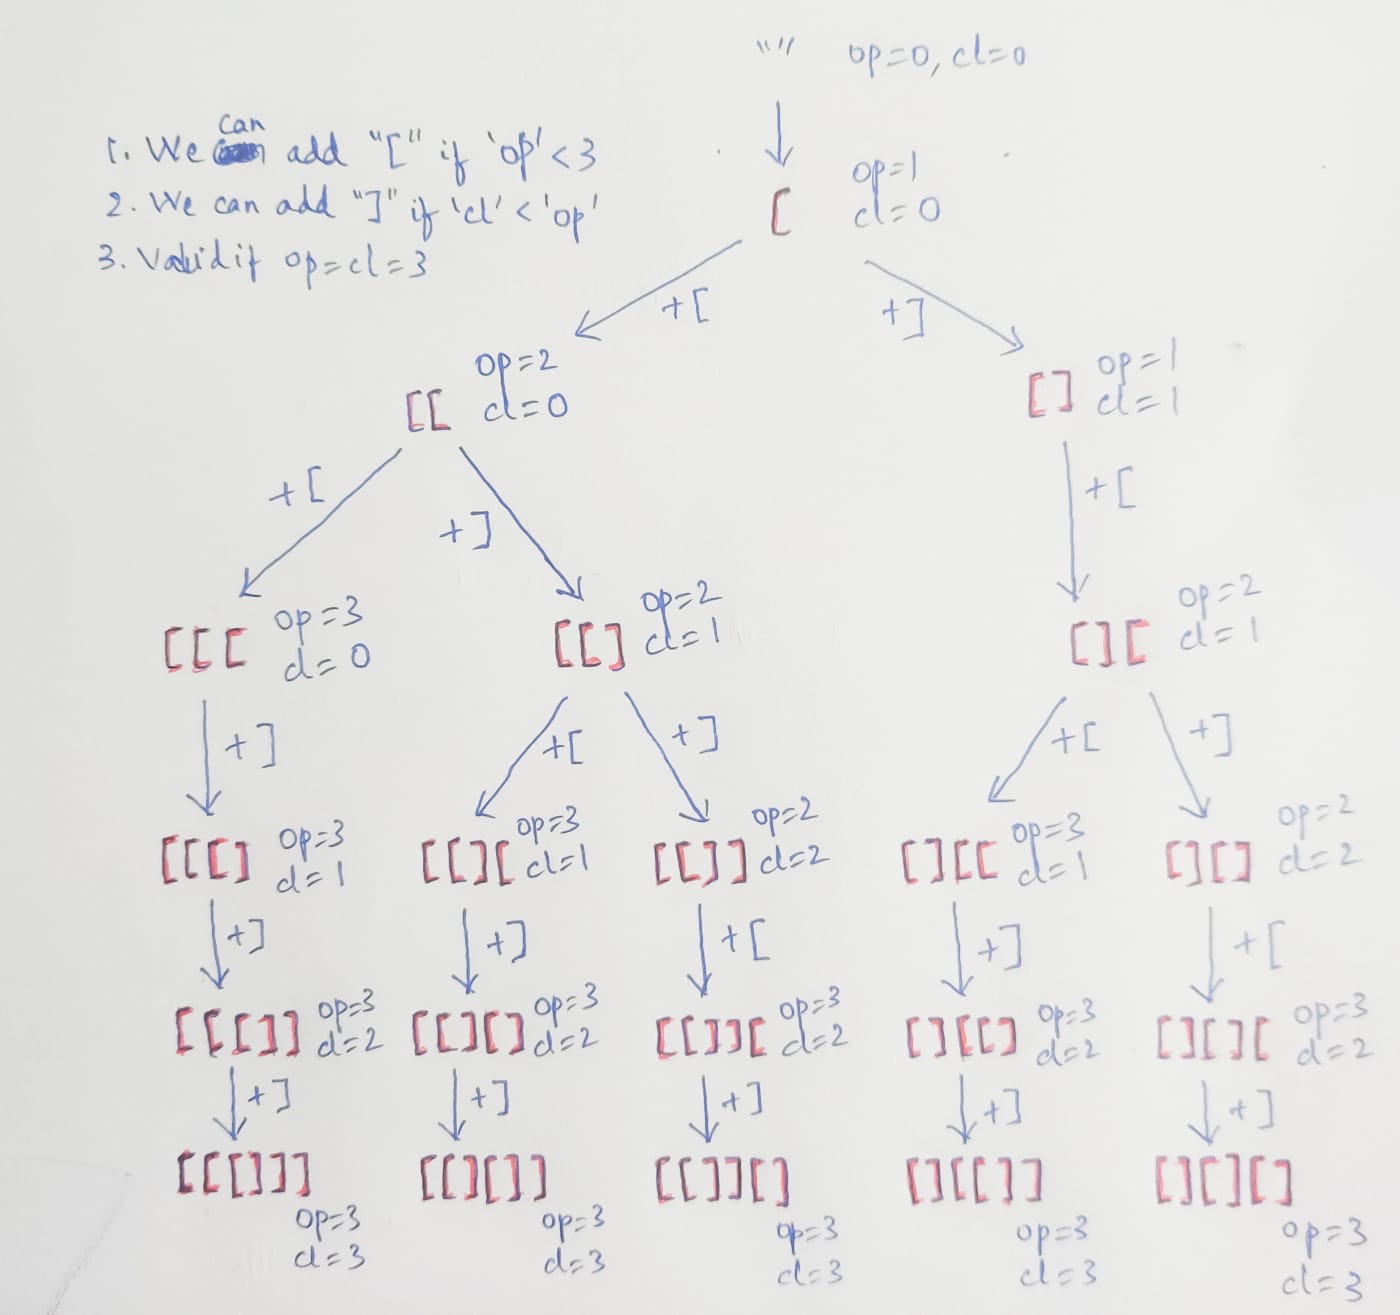 "" op=0, cl=0
1. We can add "[" if 'op' < 3
2. We can add "]" if 'cl' < 'op'
3. Valid if op=cl=3
[ op=1
cl=0
+[ +]
[[ op=2
cl=0
[] op=1
cl=1
+[ +] +[
[[[ op=3
cl=0
[[] op=2
cl=1
[][ op=2
cl=1
+] +[ +] +[ +]
[[[] op=3
cl=1
[[][ op=3
cl=1
[[]] op=2
cl=2
[][[ op=3
cl=1
[][] op=2
cl=2
+] +] +[ +] +[
[[[]] op=3
cl=2
[[][] op=3
cl=2
[[]][ op=3
cl=2
[][[] op=3
cl=2
[][][ op=3
cl=2
+] +] +] +] +]
[[[]]]
op=3
cl=3
[[][]]
op=3
cl=3
[[]][]
op=3
cl=3
[][[]]
op=3
cl=3
[][][]
op=3
cl=3